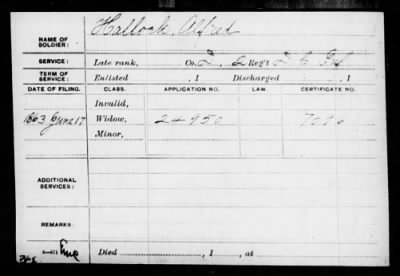 Hallock, Alfred
NAME OF SOLDIER:
SERVICE: Late rank, Co. Reg't
TERM OF SERVICE: Enlisted , 1 Discharged , 1
DATE OF FILING. CLASS. APPLICATION NO. LAW. CERTIFICATE NO.
Invalid,
1863 June 17 Widow, 24950
Minor,
ADDITIONAL SERVICES:
REMARKS:
Died , 1 , at